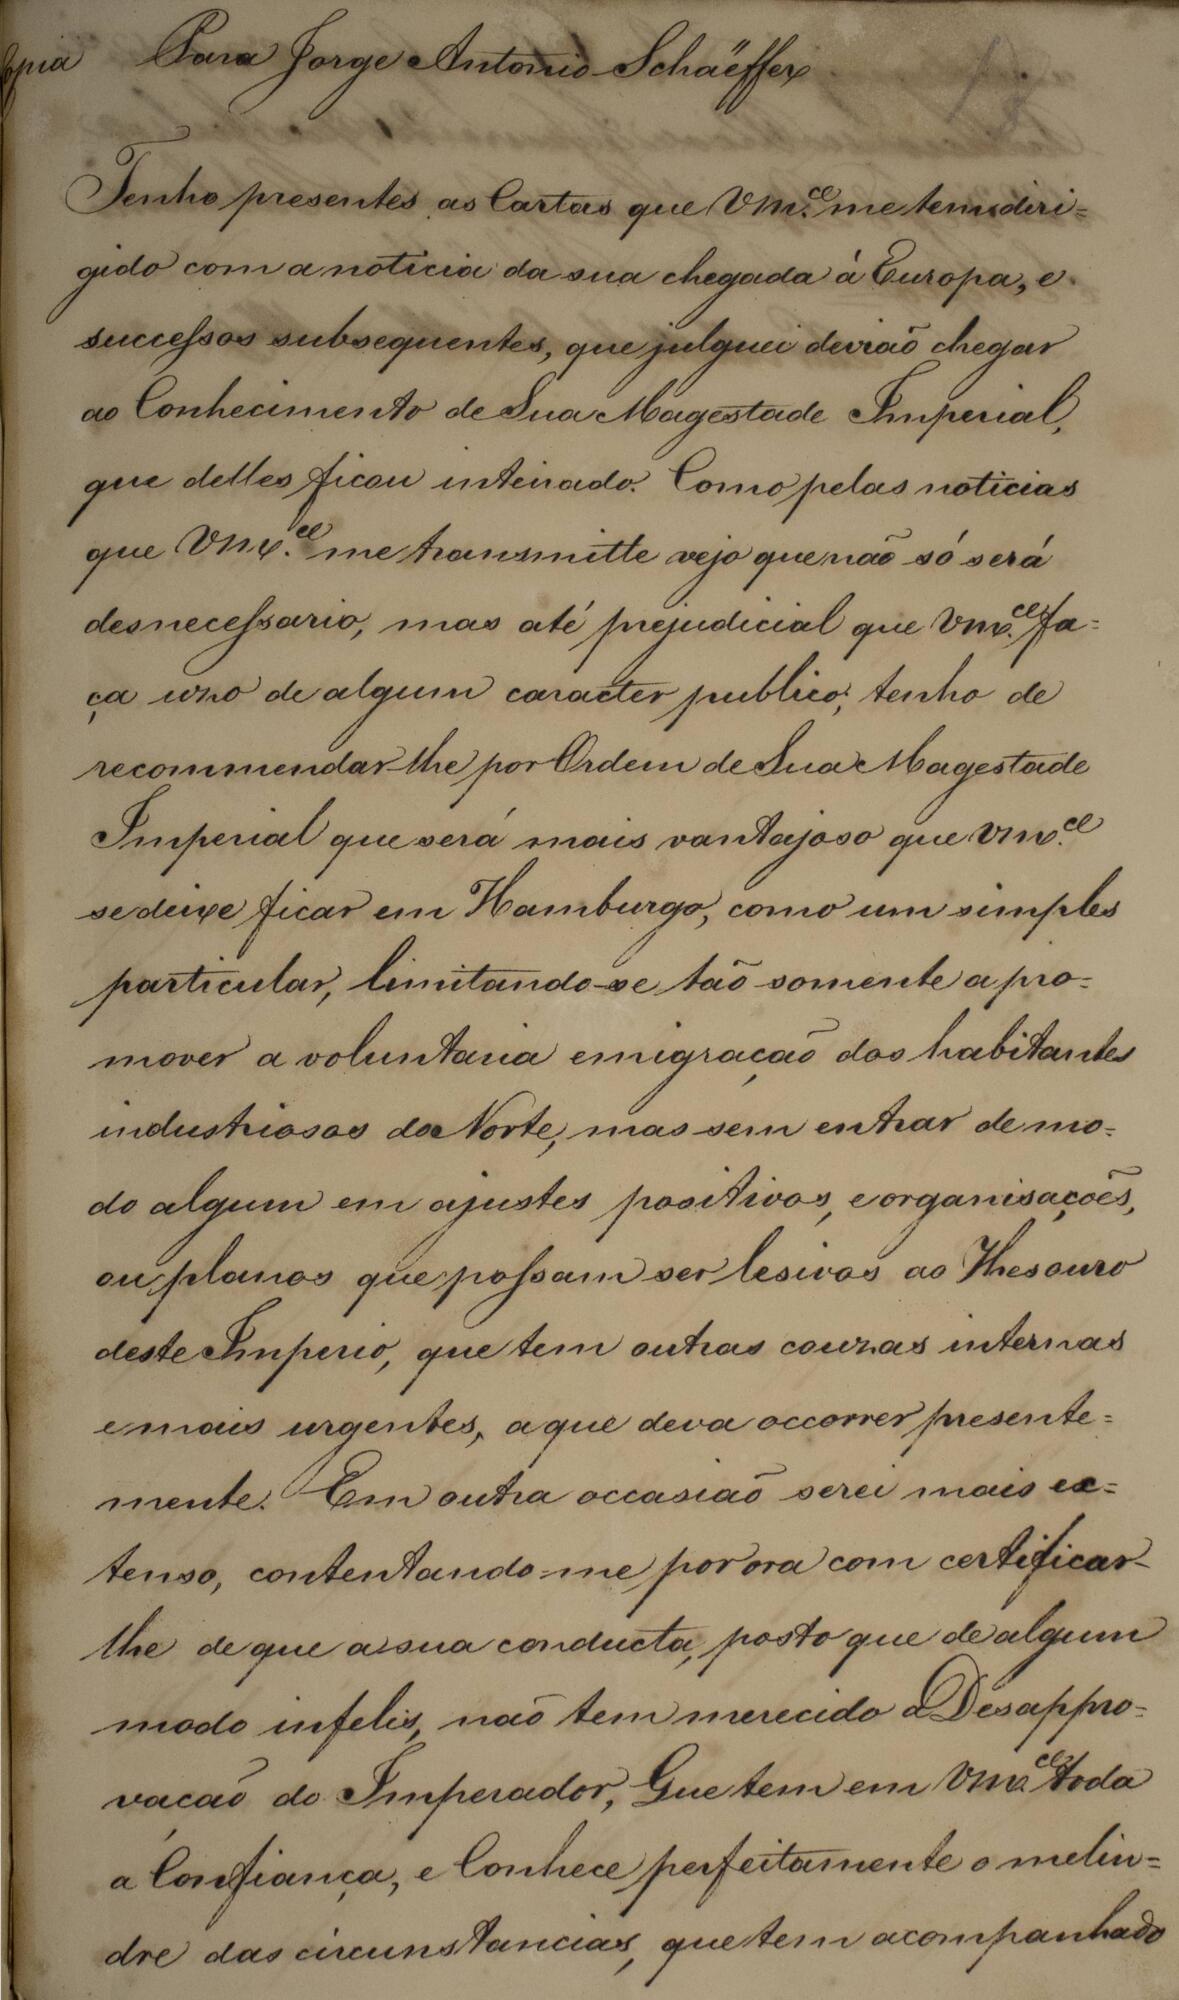 Copia Para Jorge Antonio Schäeffer
Tenho presentes as Cartas que Vm.ce me tem diri=
gido com a noticia da sua chegada à Europa, e
successos subsequentes, que julguei devião chegar
ao Conhecimento de Sua Magestade Imperial,
que delles ficou inteirado. Como pelas noticias
que Vm.ce me transmitte vejo que não só será
desnecessario, mas até prejudicial que Vm.ce fa=
ça uzo de algum caracter publico; tenho de
recommendar-lhe por Ordem de Sua Magestade
Imperial que será mais vantajoso que Vm.ce
se deixe ficar em Hamburgo, como um simples
particular, limitando-se tão somente a pro=
mover a voluntaria emigração dos habitantes
industriosos do Norte, mas sem entrar de mo=
do algum em ajustes positivos, e organisações,
ou planos que possam ser lesivos ao Thesouro
deste Imperio, que tem outras couzas internas
e mais urgentes, a que deva occorrer presente=
mente. Em outra occasião serei mais ex=
tenso, contentando-me por ora com certificar-
lhe de que a sua conducta, posto que de algum
modo infelis, não tem merecido a Desappro=
vação do Imperador, Que tem em Vm.ce toda
a Confiança, e Conhece perfeitamente o melin=
dre das circunstancias, que tem acompanhado